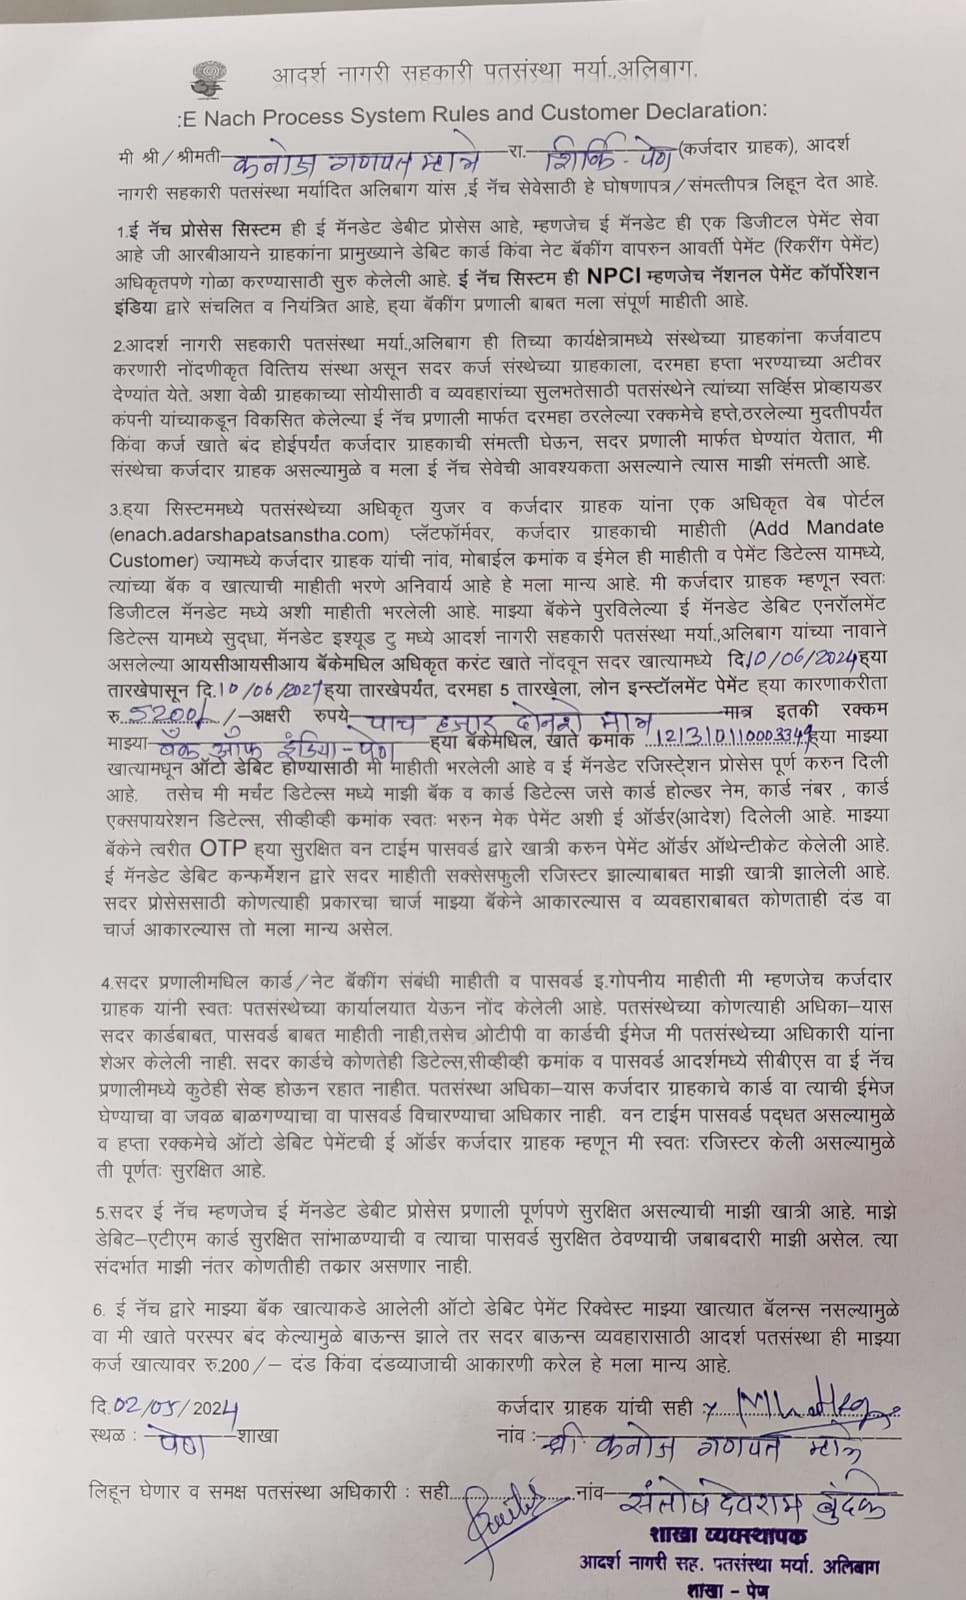 आदर्श नागरी सहकारी पतसंस्था मर्या.,अलिबाग.
:E Nach Process System Rules and Customer Declaration:
मी श्री/श्रीमती कनोज गणपत म्हात्रे रा. शिर्कि - पेण (कर्जदार ग्राहक), आदर्श
नागरी सहकारी पतसंस्था मर्यादित अलिबाग यांस ,ई नॅच सेवेसाठी हे घोषणापत्र/संमत्तीपत्र लिहून देत आहे.
1.ई नॅच प्रोसेस सिस्टम ही ई मॅनडेट डेबीट प्रोसेस आहे, म्हणजेच ई मॅनडेट ही एक डिजीटल पेमेंट सेवा
आहे जी आरबीआयने ग्राहकांना प्रामुख्याने डेबिट कार्ड किंवा नेट बॅकींग वापरुन आवर्ती पेमेंट (रिकरींग पेमेंट)
अधिकृतपणे गोळा करण्यासाठी सुरु केलेली आहे. ई नॅच सिस्टम ही NPCI म्हणजेच नॅशनल पेमेंट कॉर्पोरेशन
इंडिया द्वारे संचलित व नियंत्रित आहे, ह्या बॅकींग प्रणाली बाबत मला संपूर्ण माहीती आहे.
2.आदर्श नागरी सहकारी पतसंस्था मर्या.,अलिबाग ही तिच्या कार्यक्षेत्रामध्ये संस्थेच्या ग्राहकांना कर्जवाटप
करणारी नोंदणीकृत वित्तिय संस्था असून सदर कर्ज संस्थेच्या ग्राहकाला, दरमहा हप्ता भरण्याच्या अटीवर
देण्यांत येते. अशा वेळी ग्राहकाच्या सोयीसाठी व व्यवहारांच्या सुलभतेसाठी पतसंस्थेने त्यांच्या सर्व्हिस प्रोव्हायडर
कंपनी यांच्याकडून विकसित केलेल्या ई नॅच प्रणाली मार्फत दरमहा ठरलेल्या रक्कमेचे हप्ते,ठरलेल्या मुदतीपर्यंत
किंवा कर्ज खाते बंद होईपर्यंत कर्जदार ग्राहकाची संमत्ती घेऊन, सदर प्रणाली मार्फत घेण्यांत येतात, मी
संस्थेचा कर्जदार ग्राहक असल्यामुळे व मला ई नॅच सेवेची आवश्यकता असल्याने त्यास माझी संमत्ती आहे.
3.ह्या सिस्टममध्ये पतसंस्थेच्या अधिकृत युजर व कर्जदार ग्राहक यांना एक अधिकृत वेब पोर्टल
(enach.adarshapatsanstha.com) प्लॅटफॉर्मवर, कर्जदार ग्राहकाची माहीती (Add Mandate
Customer) ज्यामध्ये कर्जदार ग्राहक यांची नांव, मोबाईल क्रमांक व ईमेल ही माहीती व पेमेंट डिटेल्स यामध्ये,
त्यांच्या बॅक व खात्याची माहीती भरणे अनिवार्य आहे हे मला मान्य आहे. मी कर्जदार ग्राहक म्हणून स्वतः
डिजीटल मॅनडेट मध्ये अशी माहीती भरलेली आहे. माझ्या बॅकेने पुरविलेल्या ई मॅनडेट डेबिट एनरॉलमेंट
डिटेल्स यामध्ये सुद्धा, मॅनडेट इश्यूड टु मध्ये आदर्श नागरी सहकारी पतसंस्था मर्या.,अलिबाग यांच्या नावाने
असलेल्या आयसीआयसीआय बॅकेमधिल अधिकृत करंट खाते नोंदवून सदर खात्यामध्ये दि.10/06/2024ह्या
तारखेपासून दि.10/06/2027ह्या तारखेपर्यंत, दरमहा 5 तारखेला, लोन इन्स्टॉलमेंट पेमेंट ह्या कारणाकरीता
रु.5200/-/-अक्षरी रुपये पाच हजार दोनशे मात्र मात्र इतकी रक्कम
माझ्या बँक ऑफ इंडिया-पेण ह्या बॅकेमधिल, खाते क्रमांक 121310110003349ह्या माझ्या
खात्यामधून ऑटो डेबिट होण्यासाठी मी माहीती भरलेली आहे व ई मॅनडेट रजिस्ट्रेशन प्रोसेस पूर्ण करुन दिली
आहे. तसेच मी मर्चंट डिटेल्स मध्ये माझी बॅक व कार्ड डिटेल्स जसे कार्ड होल्डर नेम, कार्ड नंबर , कार्ड
एक्सपायरेशन डिटेल्स, सीव्हीव्ही क्रमांक स्वतः भरुन मेक पेमेंट अशी ई ऑर्डर(आदेश) दिलेली आहे. माझ्या
बॅकेने त्वरीत OTP ह्या सुरक्षित वन टाईम पासवर्ड द्वारे खात्री करुन पेमेंट ऑर्डर ऑथेन्टीकेट केलेली आहे.
ई मॅनडेट डेबिट कन्फर्मेशन द्वारे सदर माहीती सक्सेसफुली रजिस्टर झाल्याबाबत माझी खात्री झालेली आहे.
सदर प्रोसेससाठी कोणत्याही प्रकारचा चार्ज माझ्या बॅकेने आकारल्यास व व्यवहाराबाबत कोणताही दंड वा
चार्ज आकारल्यास तो मला मान्य असेल.
4.सदर प्रणालीमधिल कार्ड/नेट बॅकींग संबंधी माहीती व पासवर्ड इ.गोपनीय माहीती मी म्हणजेच कर्जदार
ग्राहक यांनी स्वतः पतसंस्थेच्या कार्यालयात येऊन नोंद केलेली आहे. पतसंस्थेच्या कोणत्याही अधिका–यास
सदर कार्डबाबत, पासवर्ड बाबत माहीती नाही,तसेच ओटीपी वा कार्डची ईमेज मी पतसंस्थेच्या अधिकारी यांना
शेअर केलेली नाही. सदर कार्डचे कोणतेही डिटेल्स,सीव्हीव्ही क्रमांक व पासवर्ड आदर्शमध्ये सीबीएस वा ई नॅच
प्रणालीमध्ये कुठेही सेव्ह होऊन रहात नाहीत. पतसंस्था अधिका–यास कर्जदार ग्राहकाचे कार्ड वा त्याची ईमेज
घेण्याचा वा जवळ बाळगण्याचा वा पासवर्ड विचारण्याचा अधिकार नाही. वन टाईम पासवर्ड पद्धत असल्यामुळे
व हप्ता रक्कमेचे ऑटो डेबिट पेमेंटची ई ऑर्डर कर्जदार ग्राहक म्हणून मी स्वतः रजिस्टर केली असल्यामुळे
ती पूर्णतः सुरक्षित आहे.
5.सदर ई नॅच म्हणजेच ई मॅनडेट डेबीट प्रोसेस प्रणाली पूर्णपणे सुरक्षित असल्याची माझी खात्री आहे. माझे
डेबिट–एटीएम कार्ड सुरक्षित सांभाळण्याची व त्याचा पासवर्ड सुरक्षित ठेवण्याची जबाबदारी माझी असेल. त्या
संदर्भात माझी नंतर कोणतीही तक्रार असणार नाही.
6. ई नॅच द्वारे माझ्या बॅक खात्याकडे आलेली ऑटो डेबिट पेमेंट रिक्वेस्ट माझ्या खात्यात बॅलन्स नसल्यामुळे
वा मी खाते परस्पर बंद केल्यामुळे बाऊन्स झाले तर सदर बाऊन्स व्यवहारासाठी आदर्श पतसंस्था ही माझ्या
कर्ज खात्यावर रु.200/– दंड किंवा दंडव्याजाची आकारणी करेल हे मला मान्य आहे.
दि.02/05/2024 कर्जदार ग्राहक यांची सही :
स्थळ : पेण शाखा नांव: श्री. कनोज गणपत म्हात्रे
लिहून घेणार व समक्ष पतसंस्था अधिकारी : सही नांव संतोष देवराम बुंदके
शाखा व्यवस्थापक
आदर्श नागरी सह. पतसंस्था मर्या. अलिबाग
शाखा - पेण